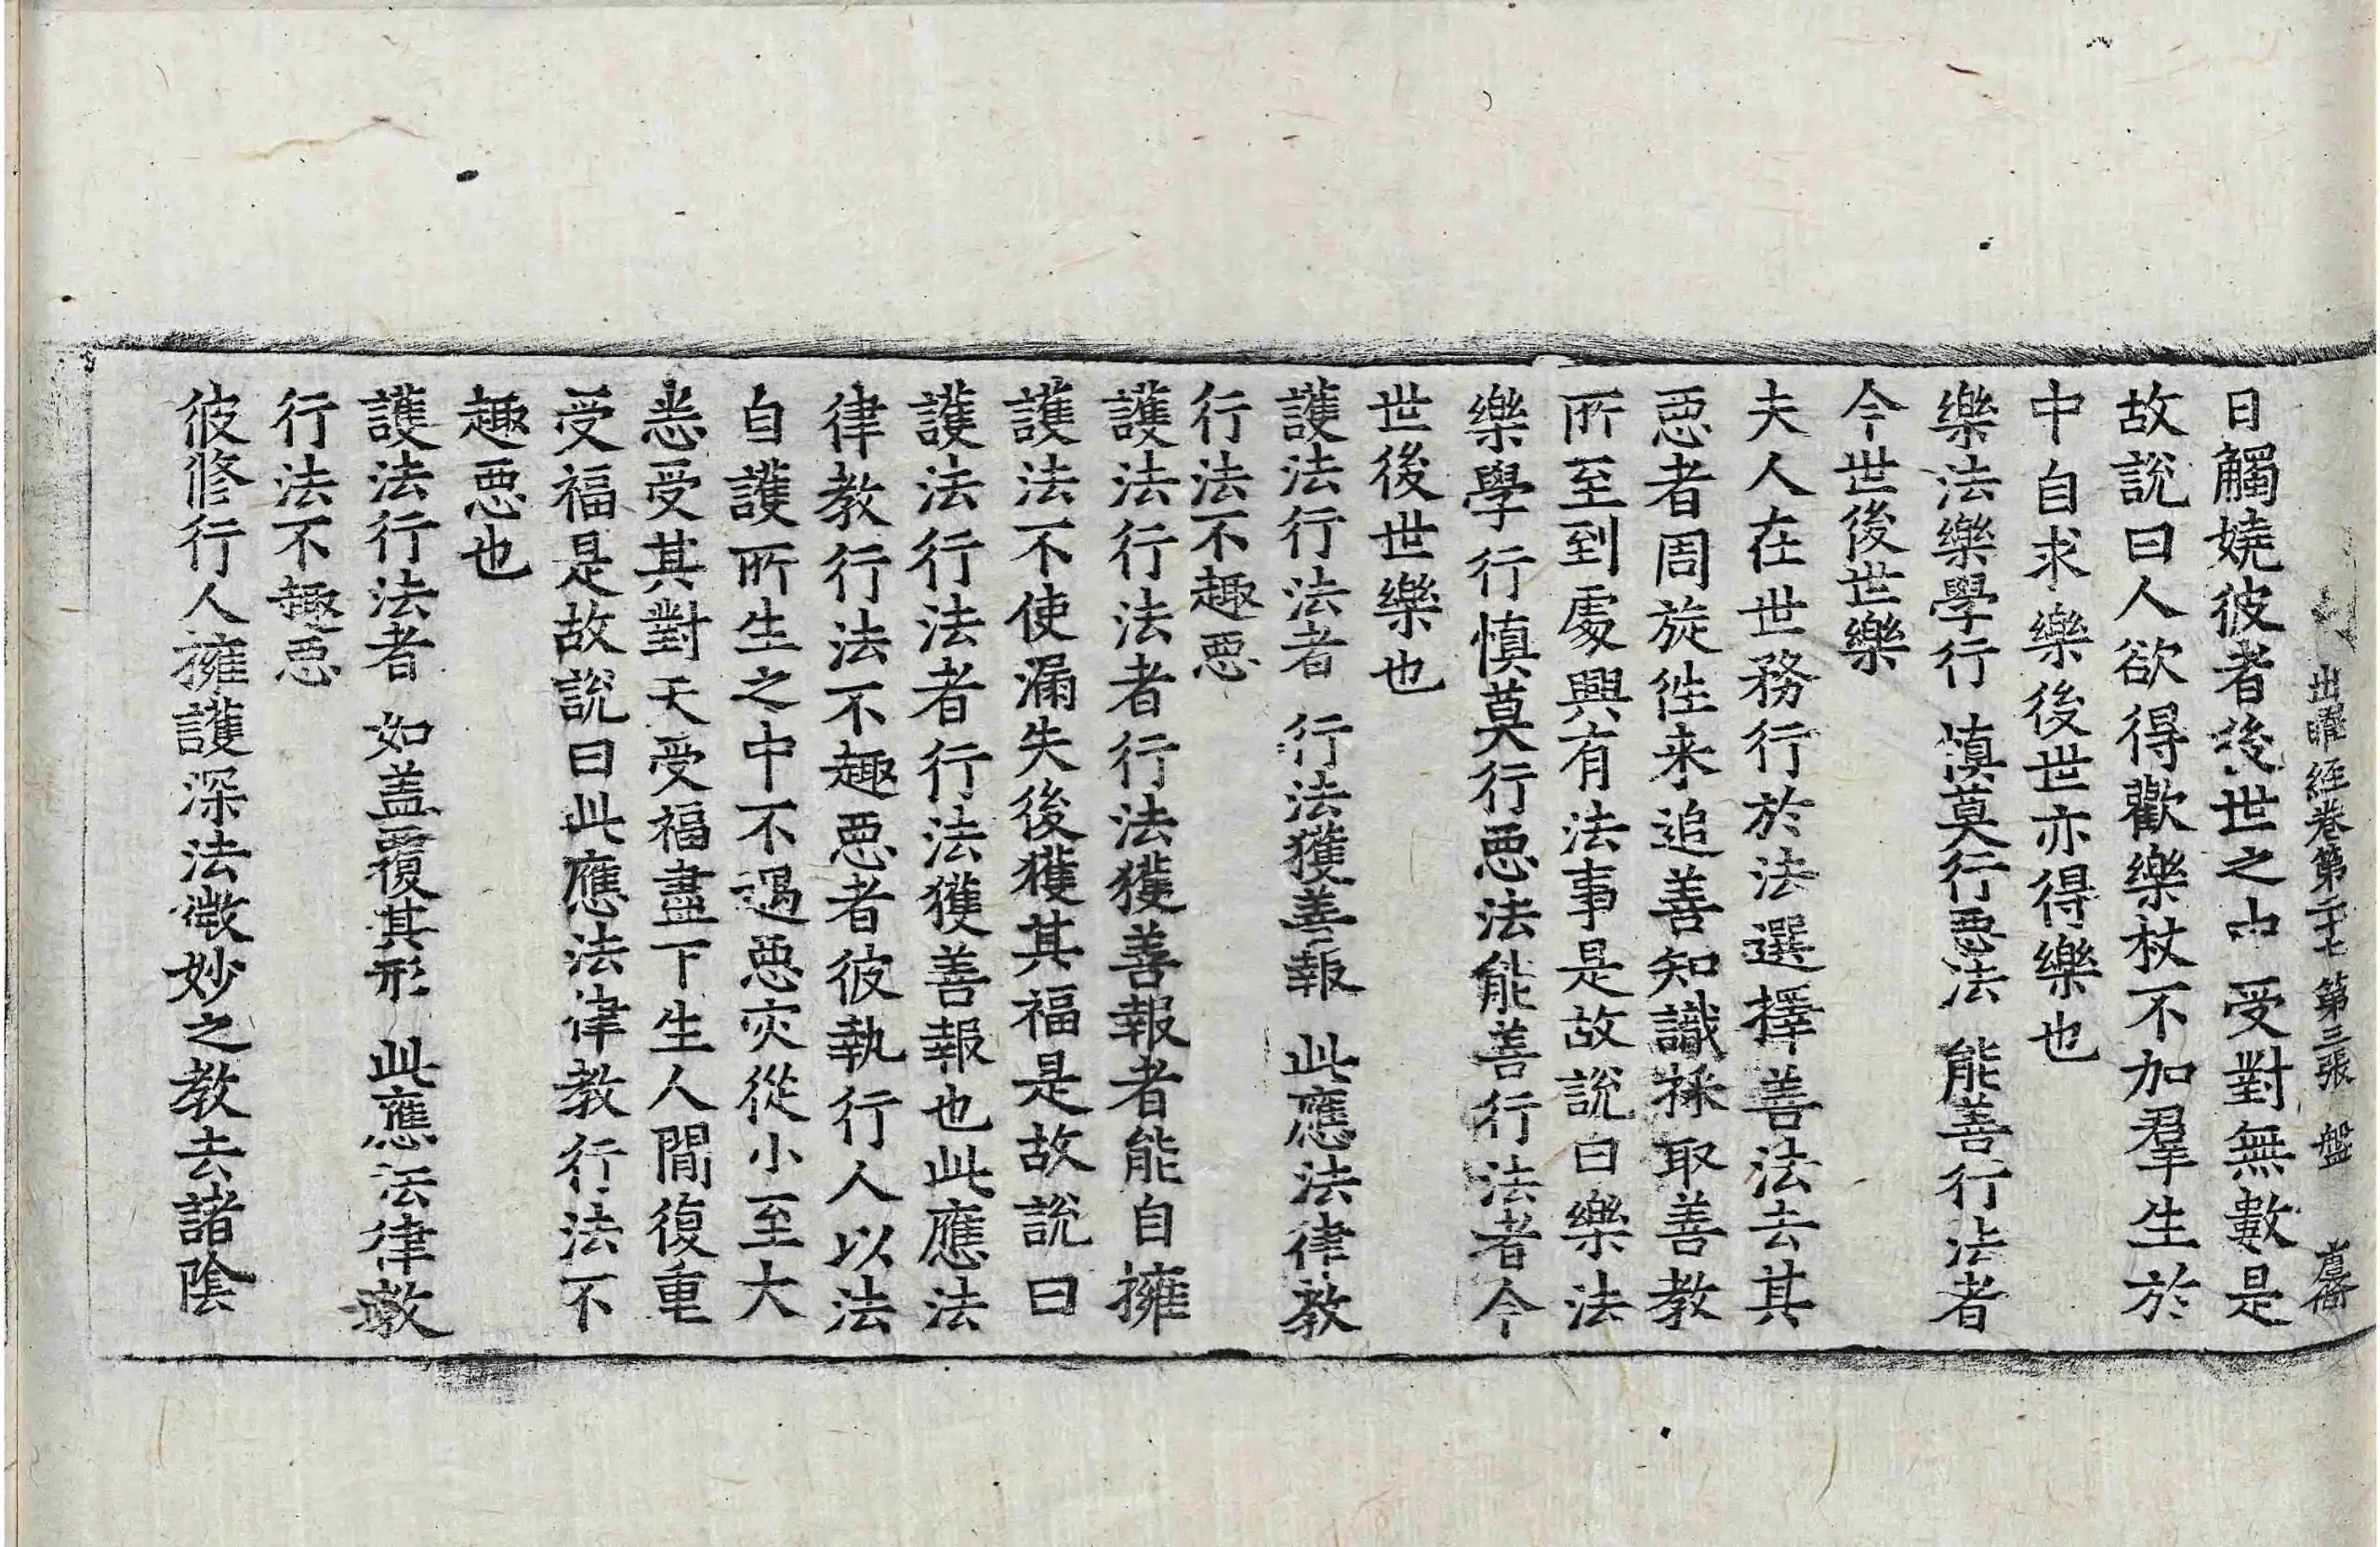 出曜經卷第二十七 第三張 盤
日觸嬈彼者後世之中受對無數是
故說曰人欲得歡樂杖不加羣生於
中自求樂後世亦得樂也
樂法樂學行 慎莫行惡法 能善行法者
今世後世樂
夫人在世務行於法選擇善法去其
惡者周旋徃来追善知識採取善教
所至到處興有法事是故說曰樂法
樂學行慎莫行惡法能善行法者今
世後世樂也
護法行法者 行法獲善報 此應法律教
行法不趣惡
護法行法者行法獲善報者能自擁
護法不使漏失後獲其福是故說曰
護法行法者行法獲善報也此應法
律教行法不趣惡者彼執行人以法
自護所生之中不遇惡灾從小至大
恙受其對天受福盡下生人間復重
受福是故說曰此應法律教行法不
趣惡也
護法行法者 如盖覆其形 此應法律教
行法不趣惡
彼修行人擁護深法微妙之教去諸陰